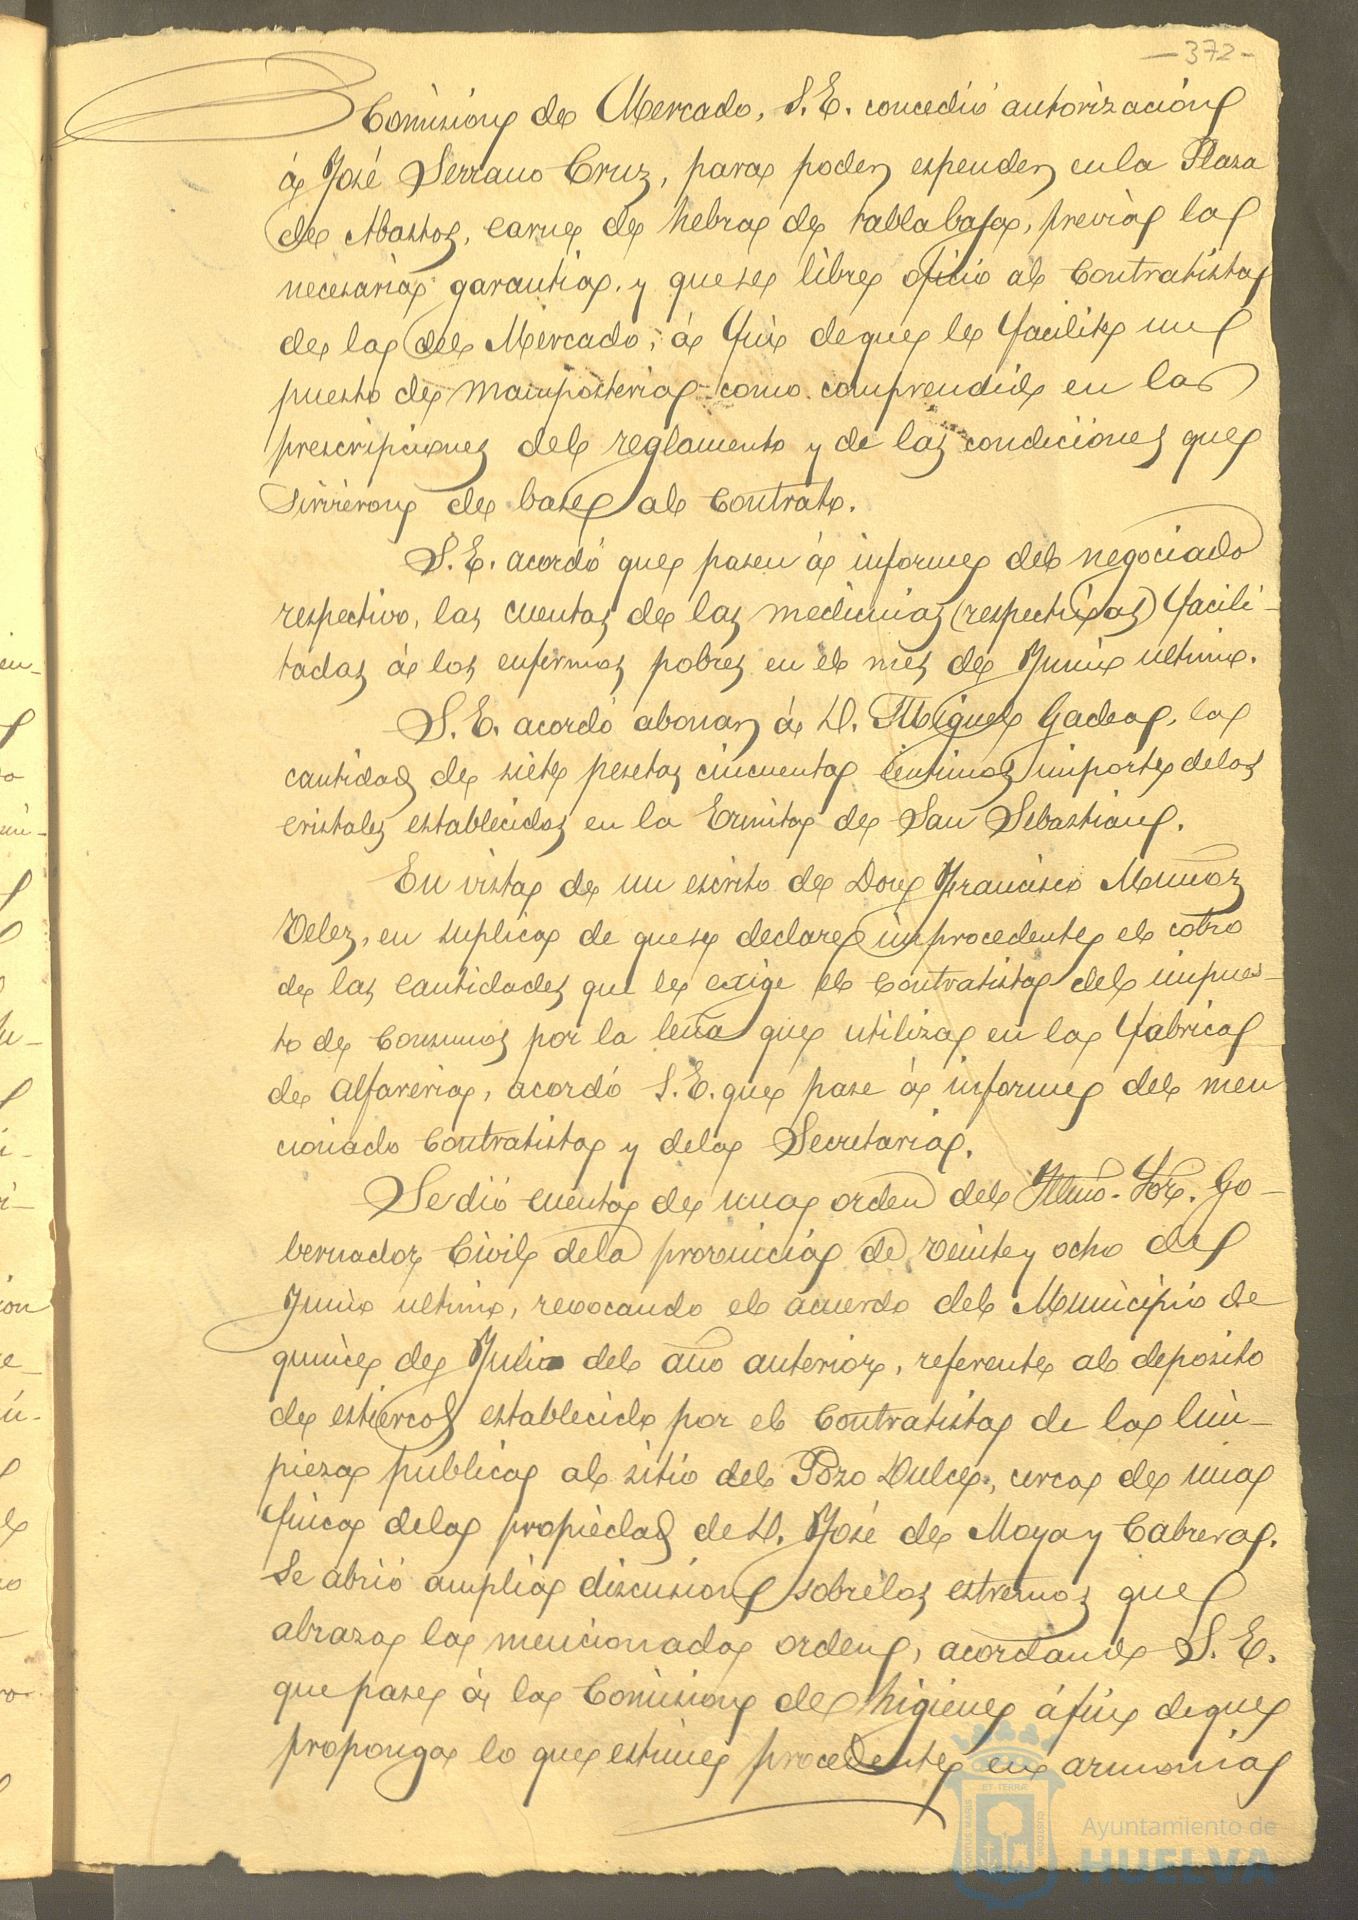 -372-
Comision de Mercado, S.E. concedió autorizacion
á José Serrano Cruz, para poder espender en la Plaza
de Abastos, carne de hebra de tabla baja, previas las
necesarias garantias, y que se libre oficio al Contratista
de la del Mercado, á fin de que le facilite un
puesto de mamposteria como comprendido en las
prescripciones del reglamento y de las condiciones que
sirvieron de base al Contrato.
S.E. acordó que pasen á informe del negociado
respectivo, las cuentas de las medicinas (respectivas) facili-
tadas á los enfermos pobres en el mes de Junio ultimo.
S.E. acordó abonar á D. Miguel Gadea, la
cantidad de siete pesetas cincuenta centimos importe de los
cristales establecidos en la Ermita de San Sebastian.
En vista de un escrito de Don Francisco Muñoz
Velez, en suplica de que se declare improcedente el cobro
de las cantidades que le exige el Contratista del impues-
to de Consumos por la leña que utiliza en la fabrica
de alfareria, acordó S.E. que pase á informe del men
cionado Contratista y de la Secretaria.
Se dió cuenta de una orden del Ylmo. Sor. Go-
bernador Civil de la provincia de veinte y ocho de
Junio ultimo, revocando el acuerdo del Municipio de
quince de Julio del año anterior, referente al deposito
de estiercol establecido por el Contratista de la lim-
pieza publica al sitio del Pozo Dulce, cerca de una
finca de la propiedad de D. José de Moya y Cabrera.
Se abrió amplia discusion sobre los estremos que
abraza la mencionada orden, acordando S.E.
que pase á la Comision de higiene á fin de que
proponga lo que estime procedente en armonia
ET TERRÆ
PORTUS MARIS
CUSTODIA
Ayuntamiento de
HUELVA